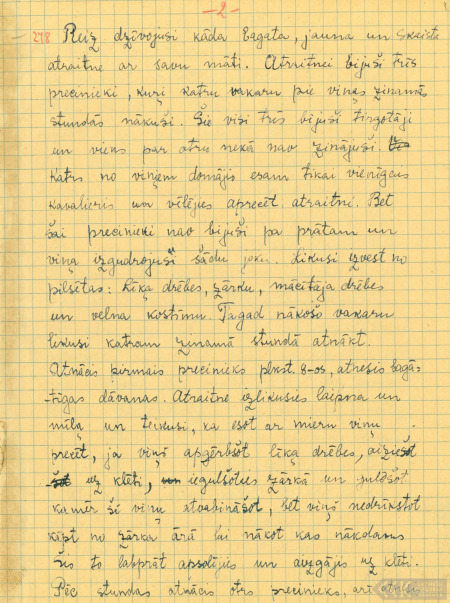 -2-
278 Reiz dzīvojusi kāda bagata, jauna un skaista
atraitne ar savu māti. Atraitnei bijuši trīs
precinieki, kuŗi katru vakaru pie viņas zinamās
stundās nākuši. Šie visi trīs bijuši tirgotāji
un viens par otru nekā nav zinājuši.
Katrs no viņiem domājis esam tikai vienīgais
kavalieris un vēlējies aprecēt atraitni. Bet
šai precinieki nav bijuši pa prātam un
viņa izgudrojusi šādu joku. Likusi izvest no
pilsētas: Līķa drēbes, zārku, mācītāja drēbes
un velna kostīmu. Tagad nākošo vakaru
likusi katram zinamā stundā atnākt.
Atnācis pirmais precinieks plkst. 8-os, atnesis bagā-
-tīgas dāvanas. Atraitne izlikusies laipna un
mīļa un teikusi, ka esot ar mieru viņu
precēt, ja viņš apģērbšot līķa drēbes, aiziešot
uz klēti, iegulšoties zārkā un gulēšot
kamēr šī viņu atvabināšot, bet viņš nedrīkstot
kāpt no zārka ārā lai nākot kas nākdams
Šis to labprāt apsolījis un aizgājis uz klēti.
Pēc stundas atnācis otrs precinieks, arī